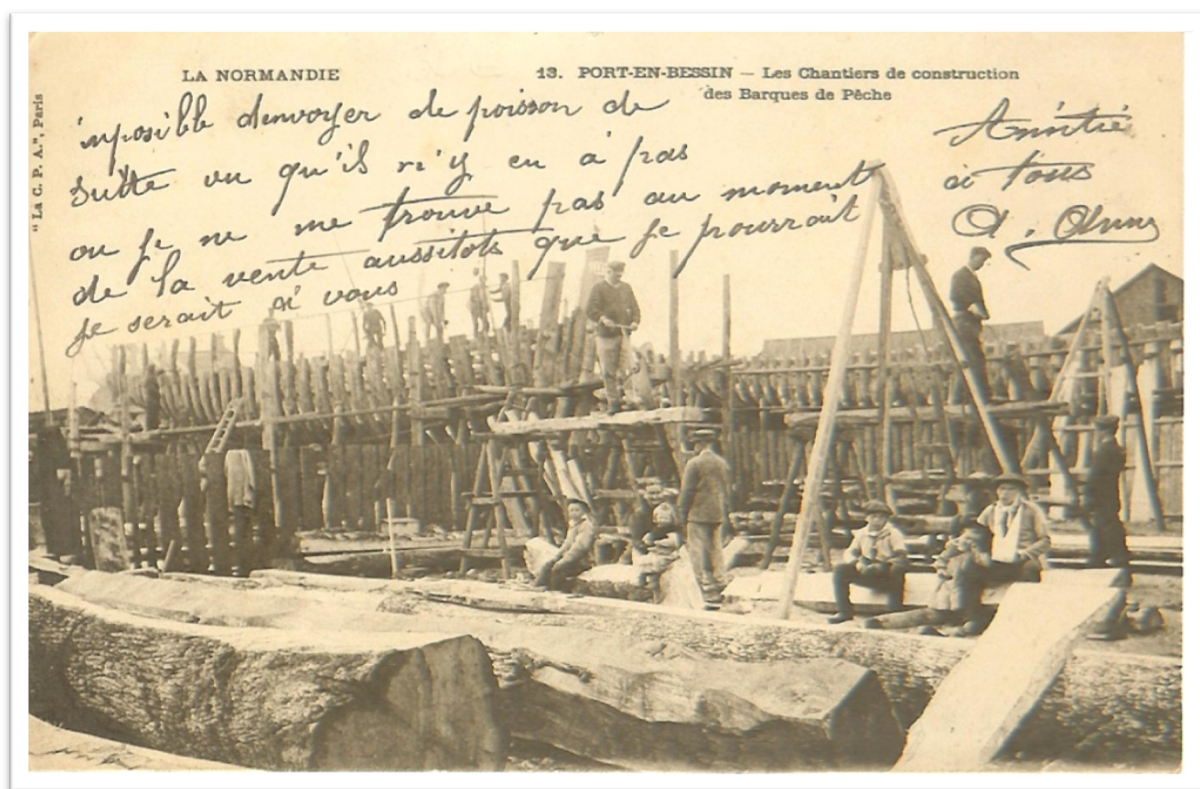 LA NORMANDIE
13. PORT-EN-BESSIN — Les Chantiers de construction
des Barques de Pêche
"La C. P. A.", Paris
imposible d'envoyer de poisson de
suitte vu qu'il n'y en a pas
ou je ne me trouve pas au moment
de la vente aussitots que je pourrait
je serait a vous
Amitié
à tous
A.